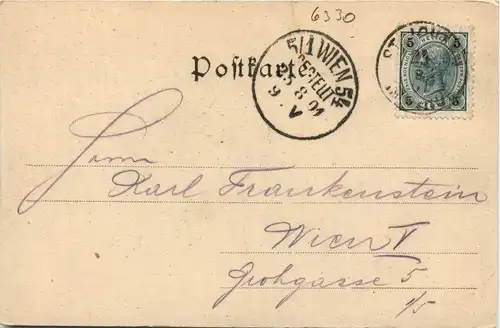 6330
Postkarte
5/1 WIEN 54
BESTELLT
9. V
ST. JOHANN
5 5
5 5
Herrn
Karl Frankenstein
Wien V
Grohgasse 5
1/5